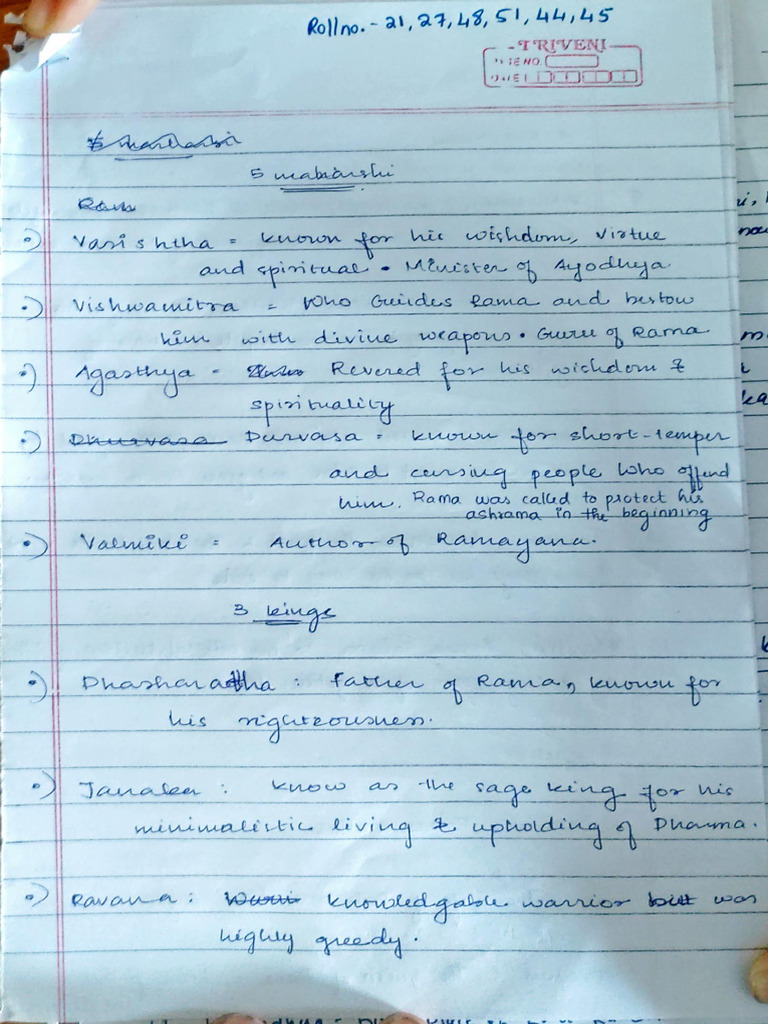 Roll no. - 21, 27, 48, 51, 44, 45
TRIVENI
5 maharshi
Ram
•) Vasishtha = known for his wishdom, virtue
and spiritual • Minister of Ayodhya
•) Vishwamitra = Who Guides Rama and bestow
him with divine weapons. Guru of Rama
•) Agasthya = Revered for his wishdom &
spirituality
•) Dhurvasa Durvasa = known for short-temper
and cursing people who offend
him. Rama was called to protect his
ashrama in the beginning
•) Valmiki = Author of Ramayana.
3 kings
•) Dhasharatha : Father of Rama, known for
his righteousness.
•) Janaka : know as the sage king for his
minimalistic living & upholding of Dharma.
•) Ravana : knowledgable warrior but was
highly greedy.